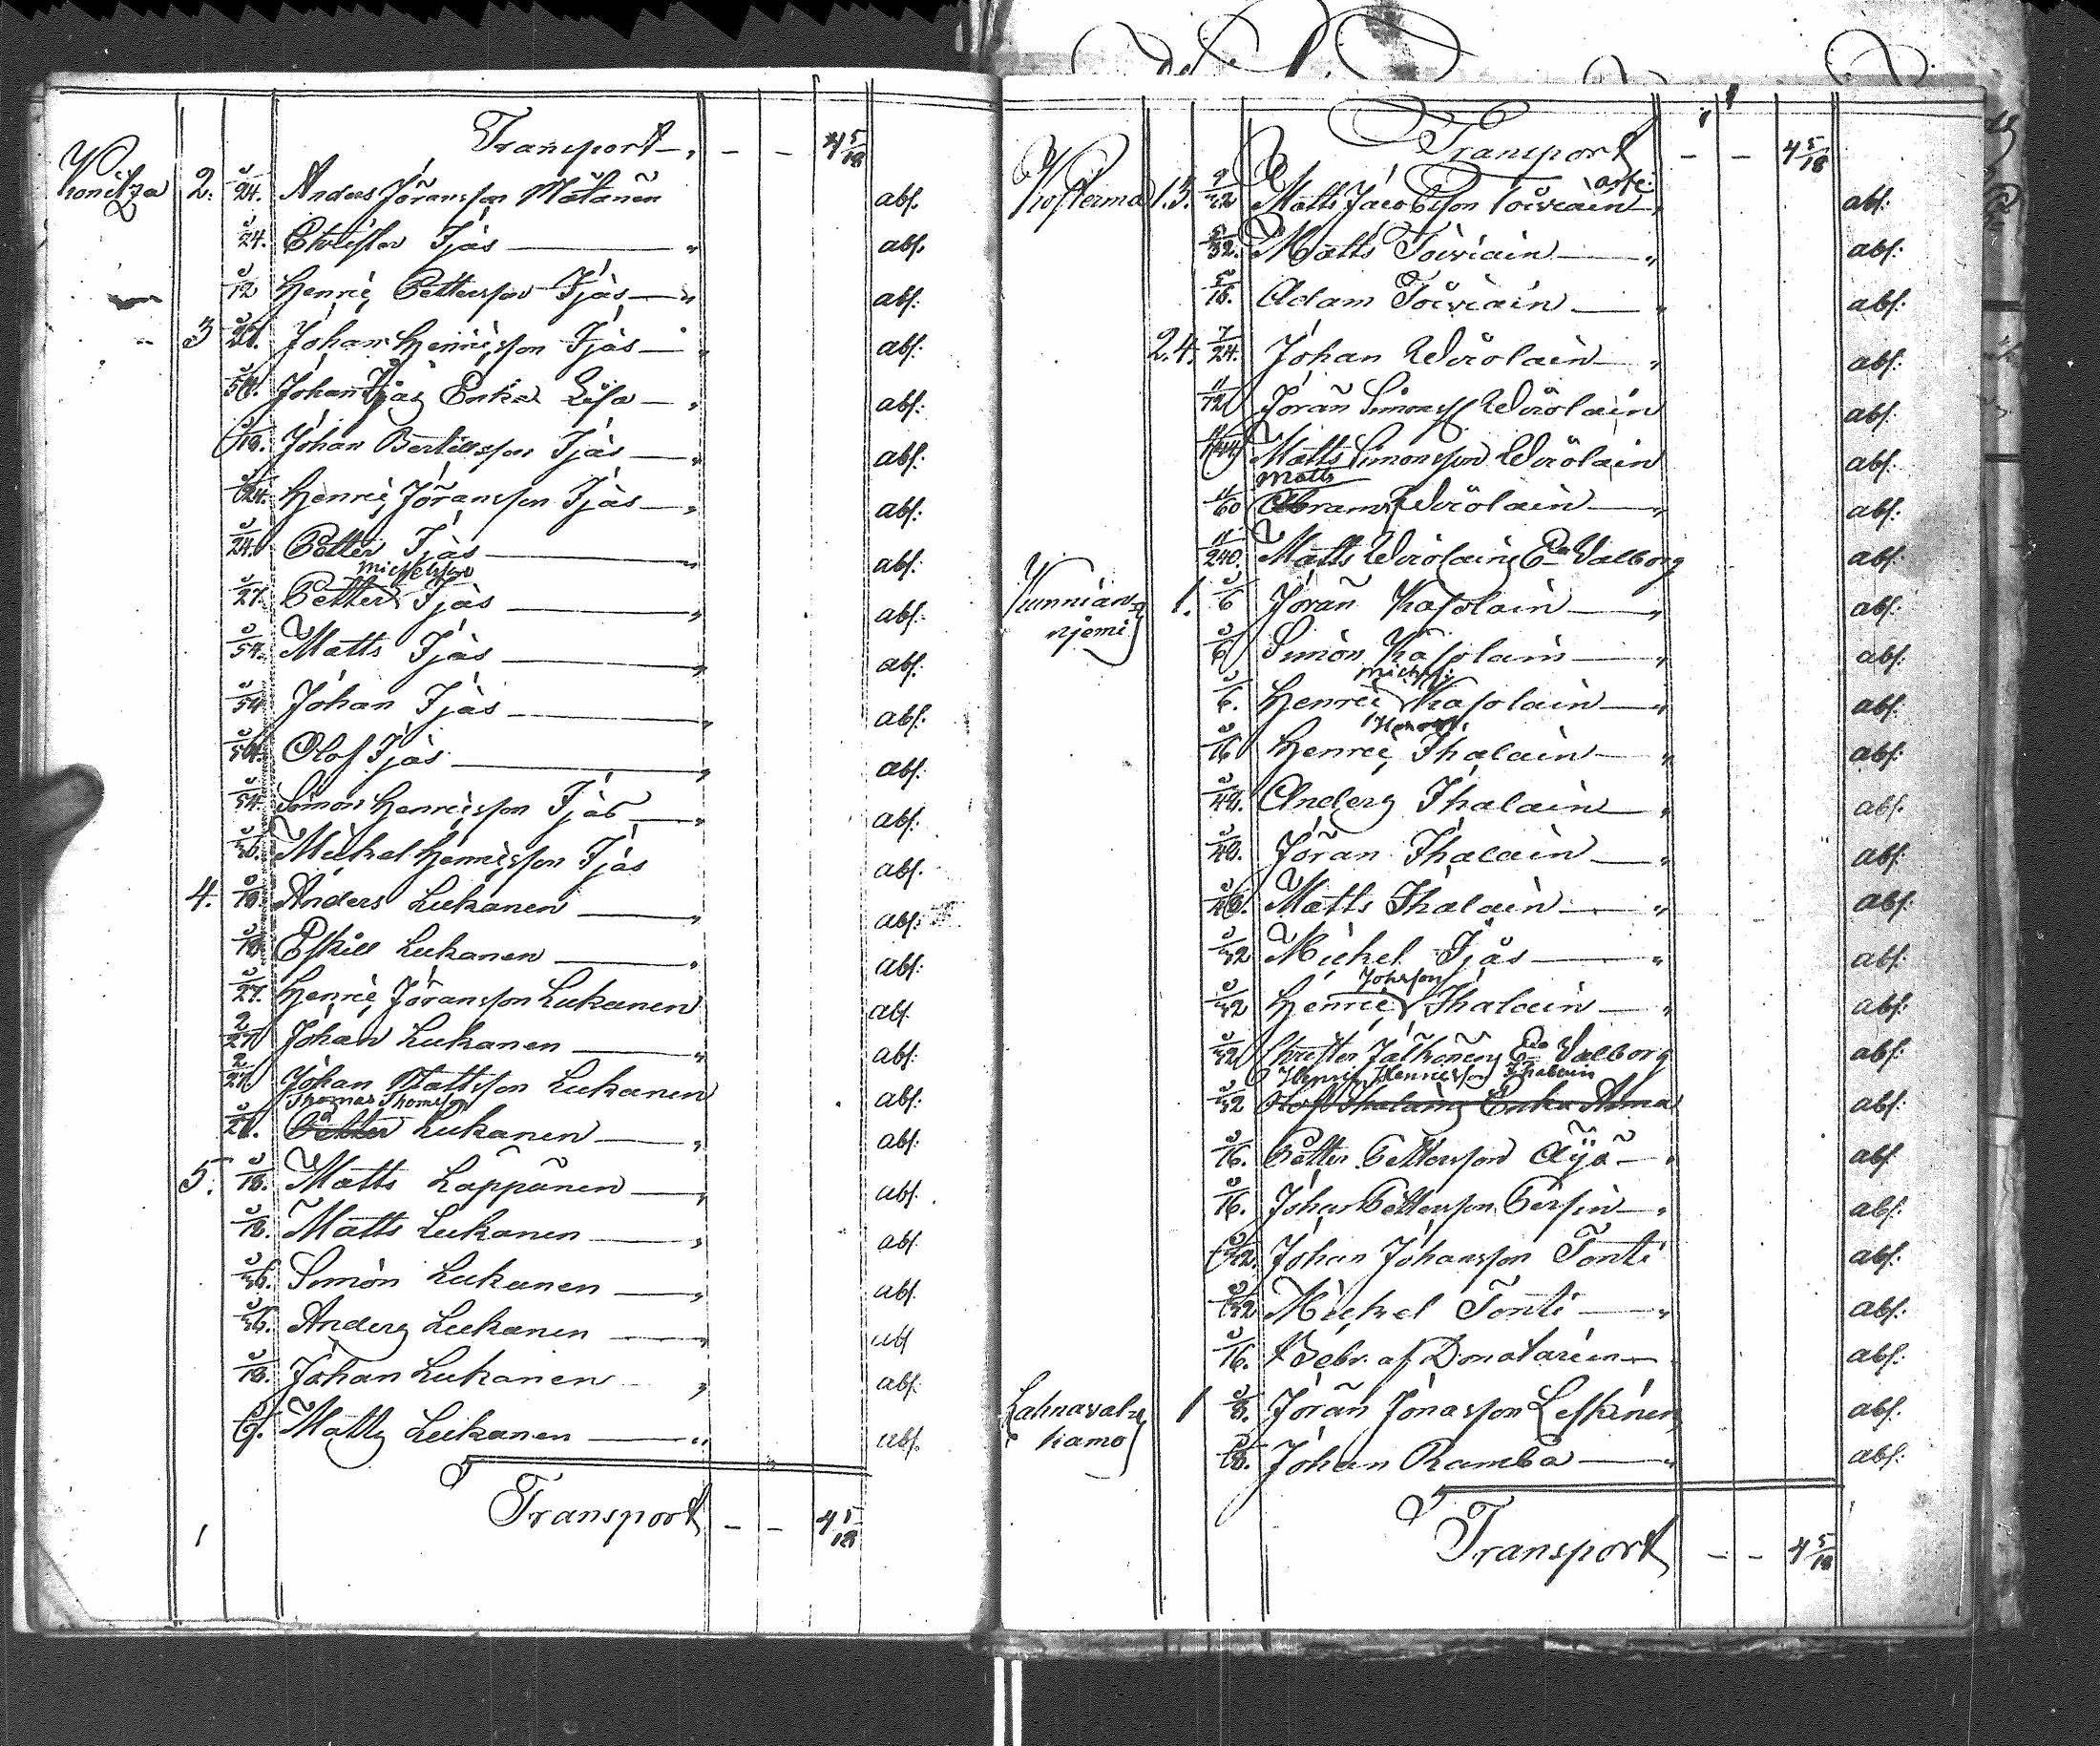 Transport - - 4 5/18
Kronitza 2. 24. Anders Jöransson Mätänen abs.
24. Christer Ijäs abs.
12 Henric Pettersson Ijäs abs.
3 Johan Henricsson Ijäs abs.
54. Johan Ijäs Enka Lisa abs.
18. Johan Bertillsson Ijäs abs.
24. Henric Jöransson Ijäs abs.
24. Petter Ijäs abs.
Michelsson
27. Petter Ijäs abs.
54. Matts Ijäs abs.
54 Johan Ijäs abs.
54. Olof Ijäs abs.
54. Simon Henricsson Ijäs abs.
36. Michel Henricsson Ijäs abs.
4. 18. Anders Lukanen abs.
18. Eskill Lukanen abs.
27. Henric Jöransson Lukanen abs.
2/27 Johan Lukanen abs.
2/27 Johan Mattsson Lukanen abs.
Thomas Thomsson
27. Petter Lukanen abs.
5. 18. Matts Läppänen abs.
18. Matts Lukanen abs.
36. Simon Lukanen abs.
36. Anders Lukanen abs
18. Johan Lukanen abs.
9. Matts Lukanen abs.
Transport - - 4 5/18
1
Transport - - 4 5/18
Kosterma 1.3. Matts Jacobsson Toiviain abs:
32. Matts Toiviain abs:
16. Adam Toiviain abs:
2.4. 7/24. Johan Wirolain abs:
11/12 Jöran Simonss Wirolain abs:
Matts Simonsson Wirolain abs:
Matts
11/60 Abrams Wirolain abs:
11/240. Matts Wirolains Ea Valborg abs:
Kunnian-
njemi 1. 6 Jöran Kasolain abs:
6 Simon Kasolain abs:
Michss:
6. Henric Kasolain abs:
Henrss:
16 Henric Ihalain abs:
48. Anders Ihalain abs:
48. Jöran Ihalain abs:
48. Matts Ihalain abs:
32 Michel Ijäs abs:
Johsson
32 Henric Ihalain abs:
32 Christer Jälkönens Ea Valborg abs:
Henric Henricsson Ihalain
32 Olof Ihalains Enka Anna abs:
16. Petter Pettersson Äijä abs
16. Johan Pettersson Persin abs:
32. Johan Johansson Tonti abs:
32 Michel Tonti abs:
16. Bebr. af Donatarien abs:
Lahnaval-
kamo 1 8. Jöran Jonasson Leskinen abs:
8. Johan Ramba abs:
Transport - - 4 5/18